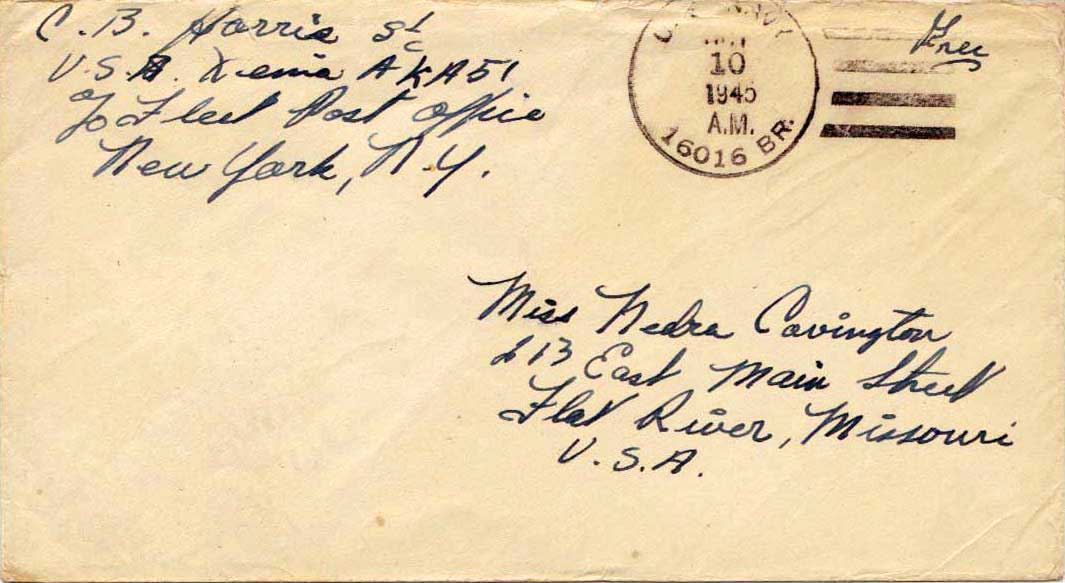 C. B. Harris S 1/c
U.S.S. Xenia AKA51
c/o Fleet Post Office
New York, N.Y.
Free
10
1945
A.M.
16016 BR.
Miss Nedra Covington
213 East Main Street
Flat River, Missouri
U.S.A.